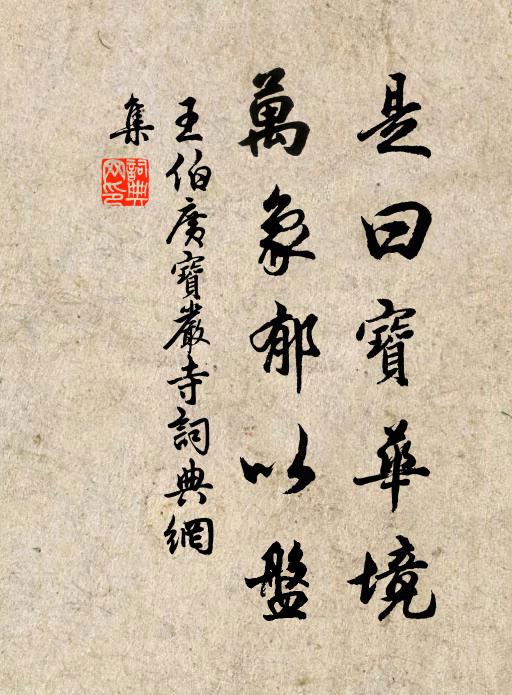 是曰寶華境
萬象郁以盤
王伯廣寶嚴寺詞典網
集
詞典
网印